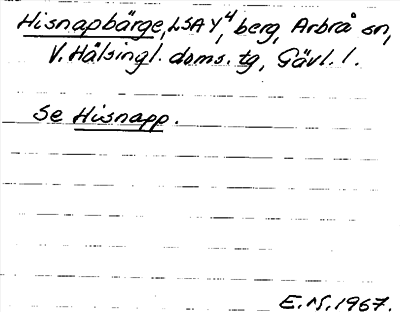 Hisnapbärge, LSA Y4, berg, Arbrå sn,
V. Hälsingl. doms. tg, Gävl. l.
Se Hisnapp.
E.N. 1967.